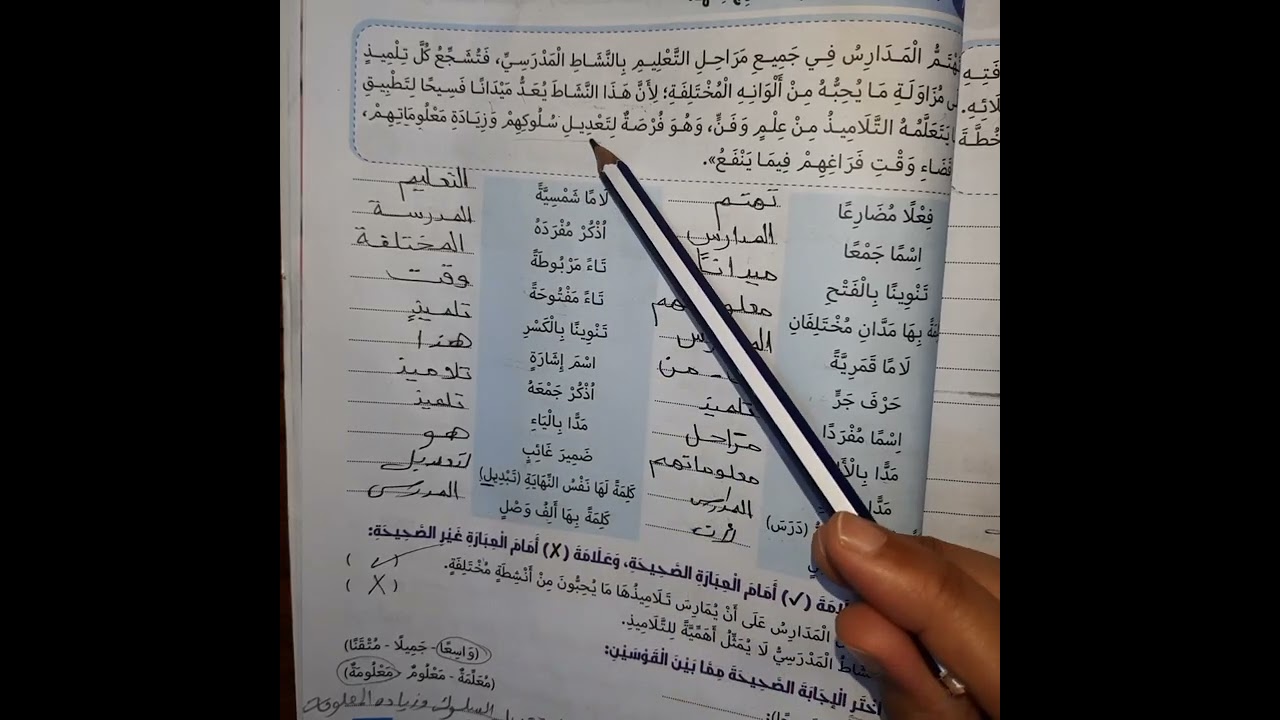 تَهْتَمُّ الْمَدَارِسُ فِي جَمِيعِ مَرَاحِلِ التَّعْلِيمِ بِالنَّشَاطِ الْمَدْرَسِيِّ، فَتُشَجِّعُ كُلَّ تِلْمِيذٍ
مُزَاوَلَةِ مَا يُحِبُّهُ مِنْ أَلْوَانِهِ الْمُخْتَلِفَةِ؛ لِأَنَّ هَذَا النَّشَاطَ يُعَدُّ مَيْدَانًا فَسِيحًا لِتَطْبِيقِ
يَتَعَلَّمُهُ التَّلَامِيذُ مِنْ عِلْمٍ وَفَنٍّ، وَهُوَ فُرْصَةٌ لِتَعْدِيلِ سُلُوكِهِمْ وَزِيَادَةِ مَعْلُومَاتِهِمْ،
قَضَاءِ وَقْتِ فَرَاغِهِمْ فِيمَا يَنْفَعُ».
فِعْلًا مُضَارِعًا تهتم لَامًا شَمْسِيَّةً التعليم
اِسْمًا جَمْعًا المدارس اُذْكُرْ مُفْرَدَهُ المدرسة
تَنْوِينًا بِالْفَتْحِ ميدانًا تَاءً مَرْبُوطَةً المختلفة
بِهَا مَدَّانِ مُخْتَلِفَانِ تَاءً مَفْتُوحَةً وقت
لَامًا قَمَرِيَّةً تَنْوِينًا بِالْكَسْرِ تلميذٍ
حَرْفَ جَرٍّ من اسْمَ إِشَارَةٍ هذا
اِسْمًا مُفْرَدًا تلميذ اُذْكُرْ جَمْعَهُ تلاميذ
مَدًّا مراحل مَدًّا بِالْيَاءِ تلميذ
مَدًّا معلوماتهم ضَمِيرَ غَائِبٍ هو
(دَرَسَ) المدارس كَلِمَةً لَهَا نَفْسُ النِّهَايَةِ (تَبْدِيلِ) لتعديل
كَلِمَةً بِهَا أَلِفُ وَصْلٍ المدرسى
(✓) أَمَامَ الْعِبَارَةِ الصَّحِيحَةِ، وَعَلَامَةَ (X) أَمَامَ الْعِبَارَةِ غَيْرِ الصَّحِيحَةِ:
الْمَدَارِسُ عَلَى أَنْ يُمَارِسَ تَلَامِيذُهَا مَا يُحِبُّونَ مِنْ أَنْشِطَةٍ مُخْتَلِفَةٍ. (✓)
الْمَدْرَسِيُّ لَا يُمَثِّلُ أَهَمِّيَّةً لِلتَّلَامِيذِ. (X)
اخْتَرِ الْإِجَابَةَ الصَّحِيحَةَ مِمَّا بَيْنَ الْقَوْسَيْنِ:
(وَاسِعًا - جَمِيلًا - مُتْقَنًا)
(مُعَلَّمَةٌ - مَعْلُومٌ - مَعْلُومَةٌ)
السلوك وزيادة المعلومة